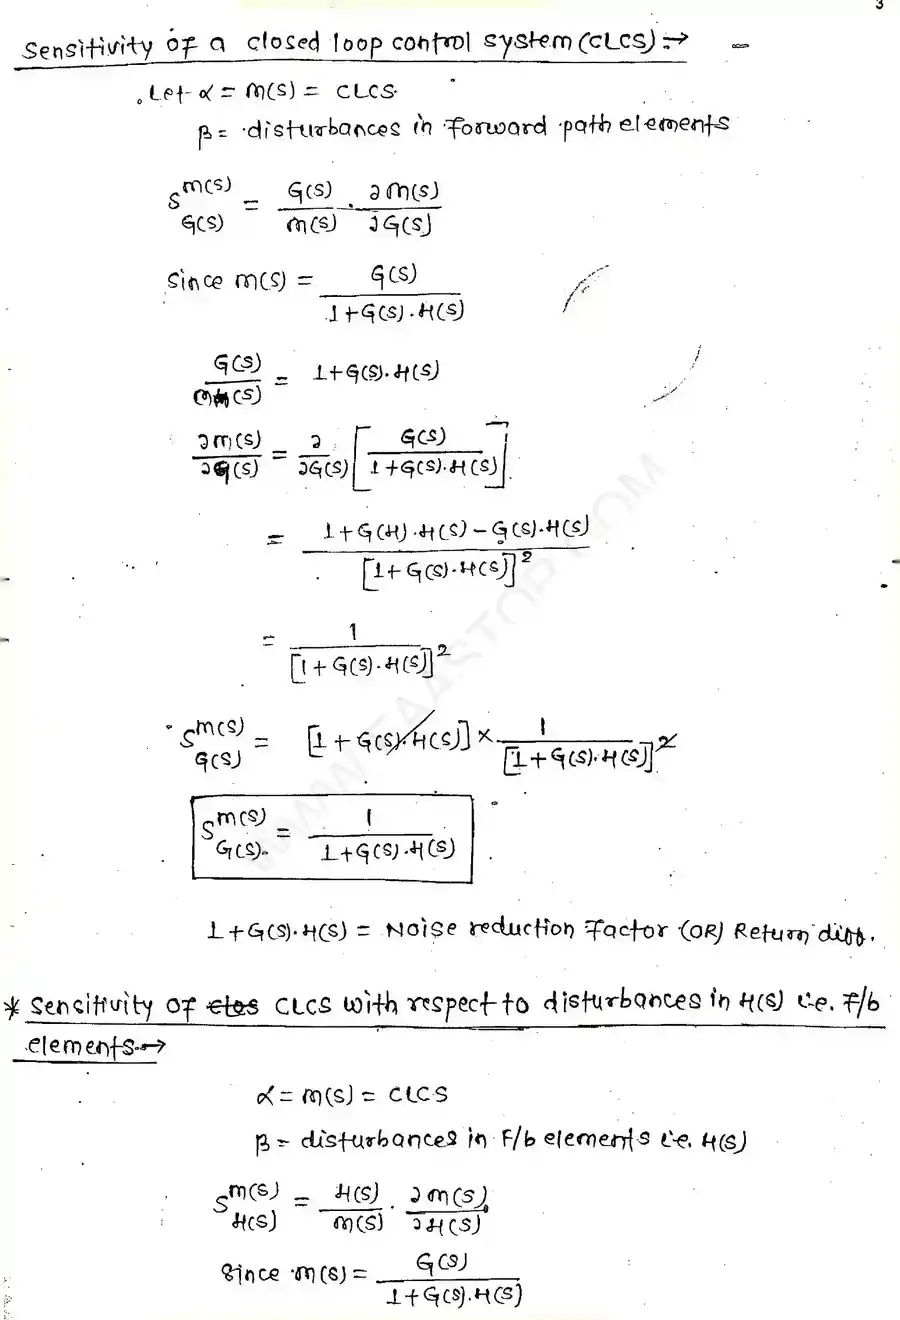 3
Sensitivity of a closed loop control system (CLCS) :→ -
Let α = M(s) = CLCS
β = disturbances in forward path elements
S^M(s)_G(s) = G(s)/M(s) . ∂M(s)/∂G(s)
Since M(s) = G(s)/1+G(s).H(s)
G(s)/M(s) = 1+G(s).H(s)
∂M(s)/∂G(s) = ∂/∂G(s) [G(s)/1+G(s).H(s)]
= 1+G(H).H(s)-G(s).H(s)/[1+G(s).H(s)]^2
= 1/[1+G(s).H(s)]^2
S^M(s)_G(s) = [1+G(s).H(s)] × 1/[1+G(s).H(s)]^2
S^M(s)_G(s) = 1/1+G(s).H(s)
1+G(s).H(s) = Noise reduction Factor (OR) Return diff.
* Sensitivity of clos CLCS with respect to disturbances in H(s) i.e. F/b
elements→
α = M(s) = CLCS
β = disturbances in F/b elements i.e. H(s)
S^M(s)_H(s) = H(s)/M(s) . ∂M(s)/∂H(s)
Since M(s) = G(s)/1+G(s).H(s)